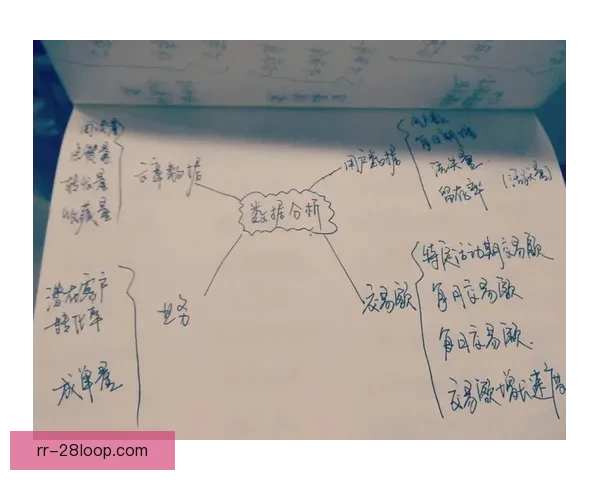 点赞量
转发量
收藏量
文章数据
用户数据
流失量
留存率
(活跃量)
数据分析
潜在客户
转化率
成单量
业务
交易额
特定活动期交易额
每月交易额
每日交易额
交易额增长速度
rr-28loop.com